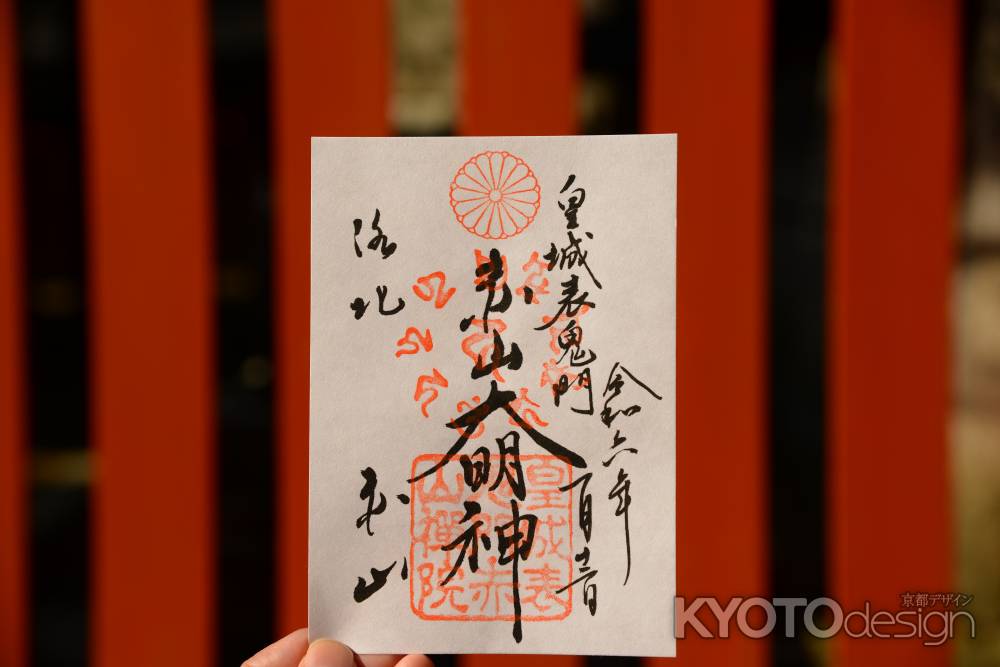 皇城表鬼門
令和六年
赤山大明神
洛北
赤山
皇城表
鬼門赤
山禪院
京都デザイン
KYOTOdesign